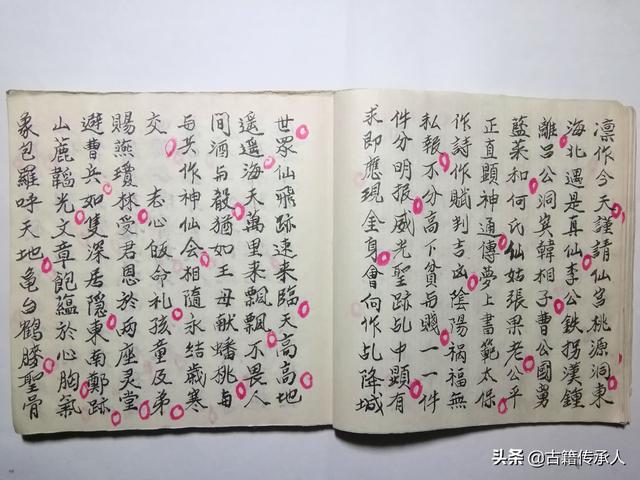 凛作今天謹請仙宮桃源洞東
海北遇是真仙李公鉄拐漢鍾
離呂公洞賓韓相子曹公國舅
藍菜和何氏仙姑張果老公平
正直顕神通傳夢上書範太保
作詩作賦判吉凶陰陽禍福無
私報不分高下貧与賤一一件
件分明报威光聖跡乩中顕有
求即應現金身會向作乩降城
世眾仙飛跡速来臨天高高地
遥遥海天萬里来飄飄不畏人
間酒与殽猶如王母献蟠桃与
与共作神仙会相隨永结歳寒
交 志心皈命礼孩童及弟
賜燕瓊林受君恩於两座灵堂
避曹兵如隻深居隱東南鄭跡
山麓韜光文章飽蕴於心胸氣
象包羅呼天地龟台鶴膝聖骨
头条 @古籍传承人